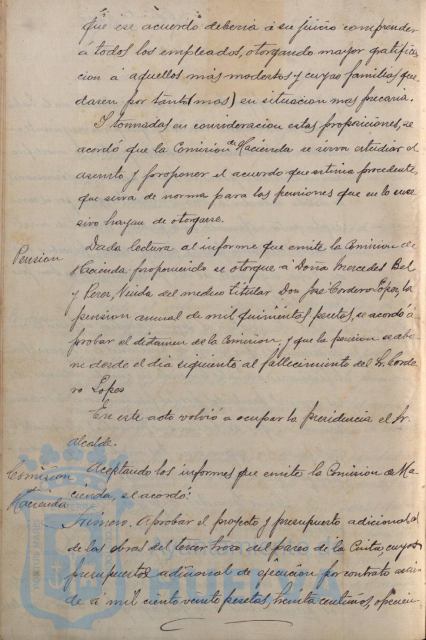 que ese acuerdo debería á su juicio comprender
á todos los empleados, otorgando mayor gratifica-
cion á aquellos más modestos y cuyas familias que-
daren por tanto (mas) en situacion mas precaria.
Y tomadas en consideracion estas proposiciones, se
acordó que la Comision de Hacienda se sirva estudiar el
asunto y proponer el acuerdo que estime procedente,
que sirva de norma para las pensiones que en lo suce-
sivo hayan de otorgarse.
Pension
Dada lectura al informe que emite la Comision de
Hacienda proponiendo se otorgue á Doña Mercedes Bel
y Perez, Viuda del medico titular Don José Cordero Lopes, la
pension anual de mil quinientas pesetas, se acordó a-
probar el dictamen de la Comision, y que la pension se abo-
ne desde el dia siguiente al fallecimiento del Sr. Corde-
ro Lopes
En este acto volvió a ocupar la presidencia el Sr.
alcalde.
Comision
de
Hacienda
Aceptando los informes que emite la Comision de Ha-
cienda, se acordó:
Primero. Aprobar el proyecto y presupuesto adicional
de las obras del tercer trozo del paseo de la Cinta, cuyos
presupuestos adicional de ejecucion por contrata ascien-
de á mil ciento veinte pesetas, treinta centimos,